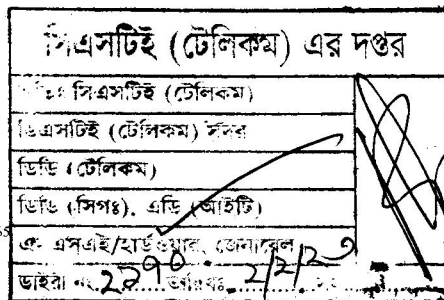 সিএসটিই (টেলিকম) এর দপ্তর
সিএসটিই (টেলিকম)
ডিএসটিই (টেলিকম) সদর
ডিডি (টেলিকম)
ডিডি (সিগঃ), এডি (আইটি)
এসএই/হার্ডওয়ার, জেনারেল
ডাইরী নং 2290 তারিখঃ 2/2/23